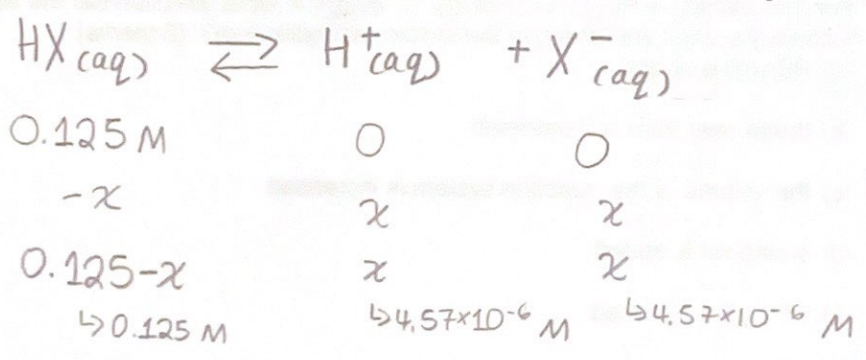 HX(aq) ⇌ H⁺(aq) + X⁻(aq)
0.125 M 0 0
-x x x
0.125-x x x
↳0.125 M ↳4.57×10⁻⁶ M ↳4.57×10⁻⁶ M